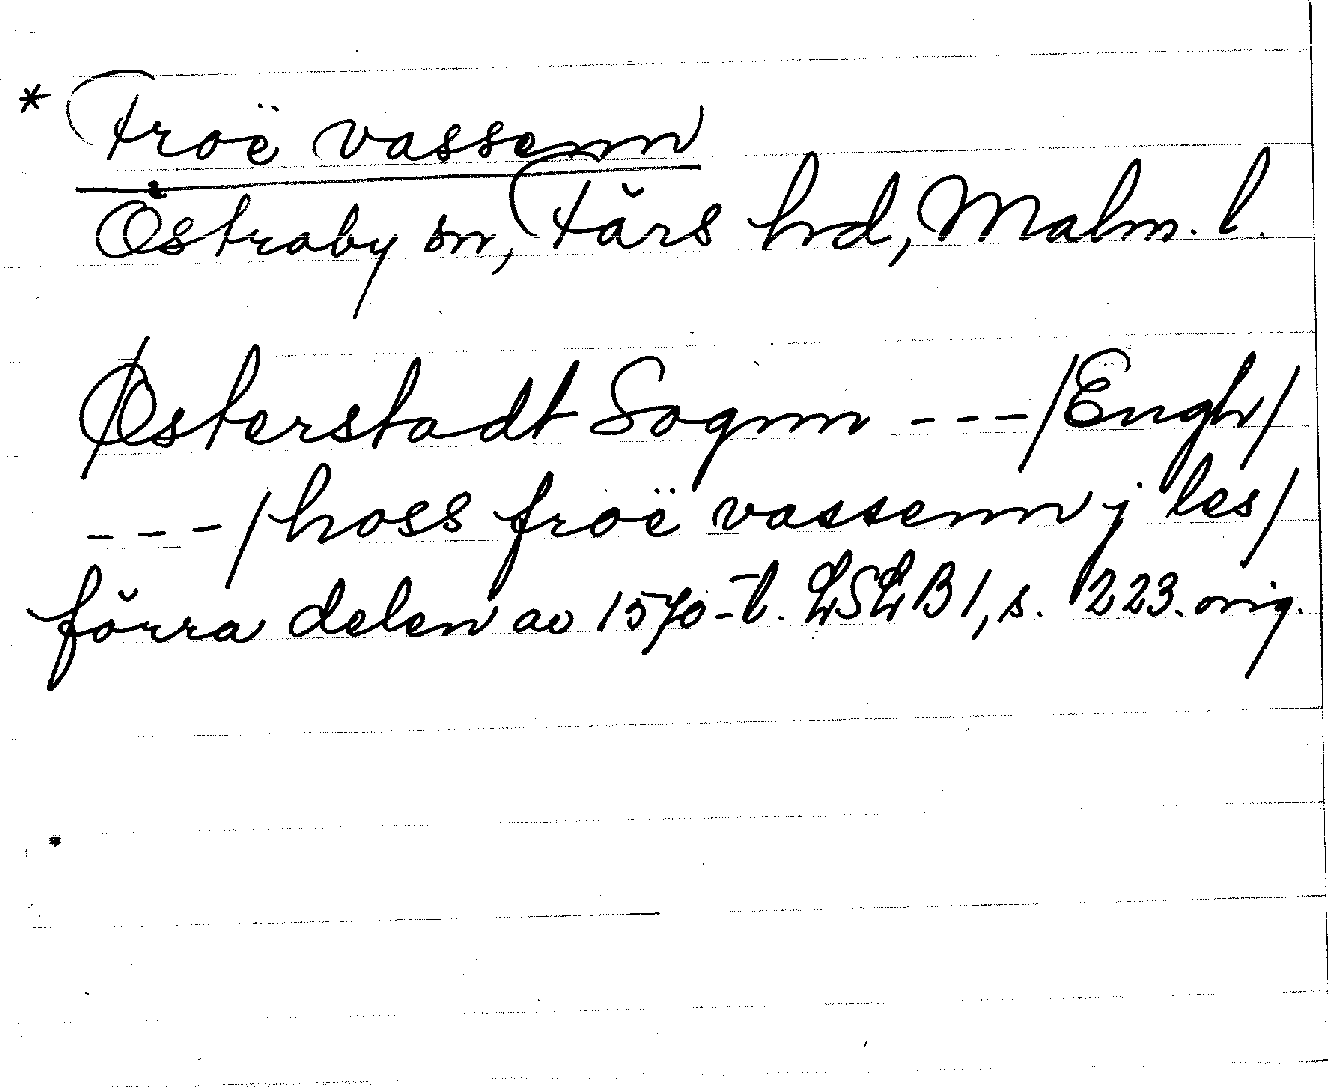 * Froë vassenn
Östraby sn, Färs hd, Malm. l.
Østerstadt Sognn --- / Engh /
--- / hoss froë vassenn j les /
förra delen av 1570-t. LSLB 1, s. 223. orig.